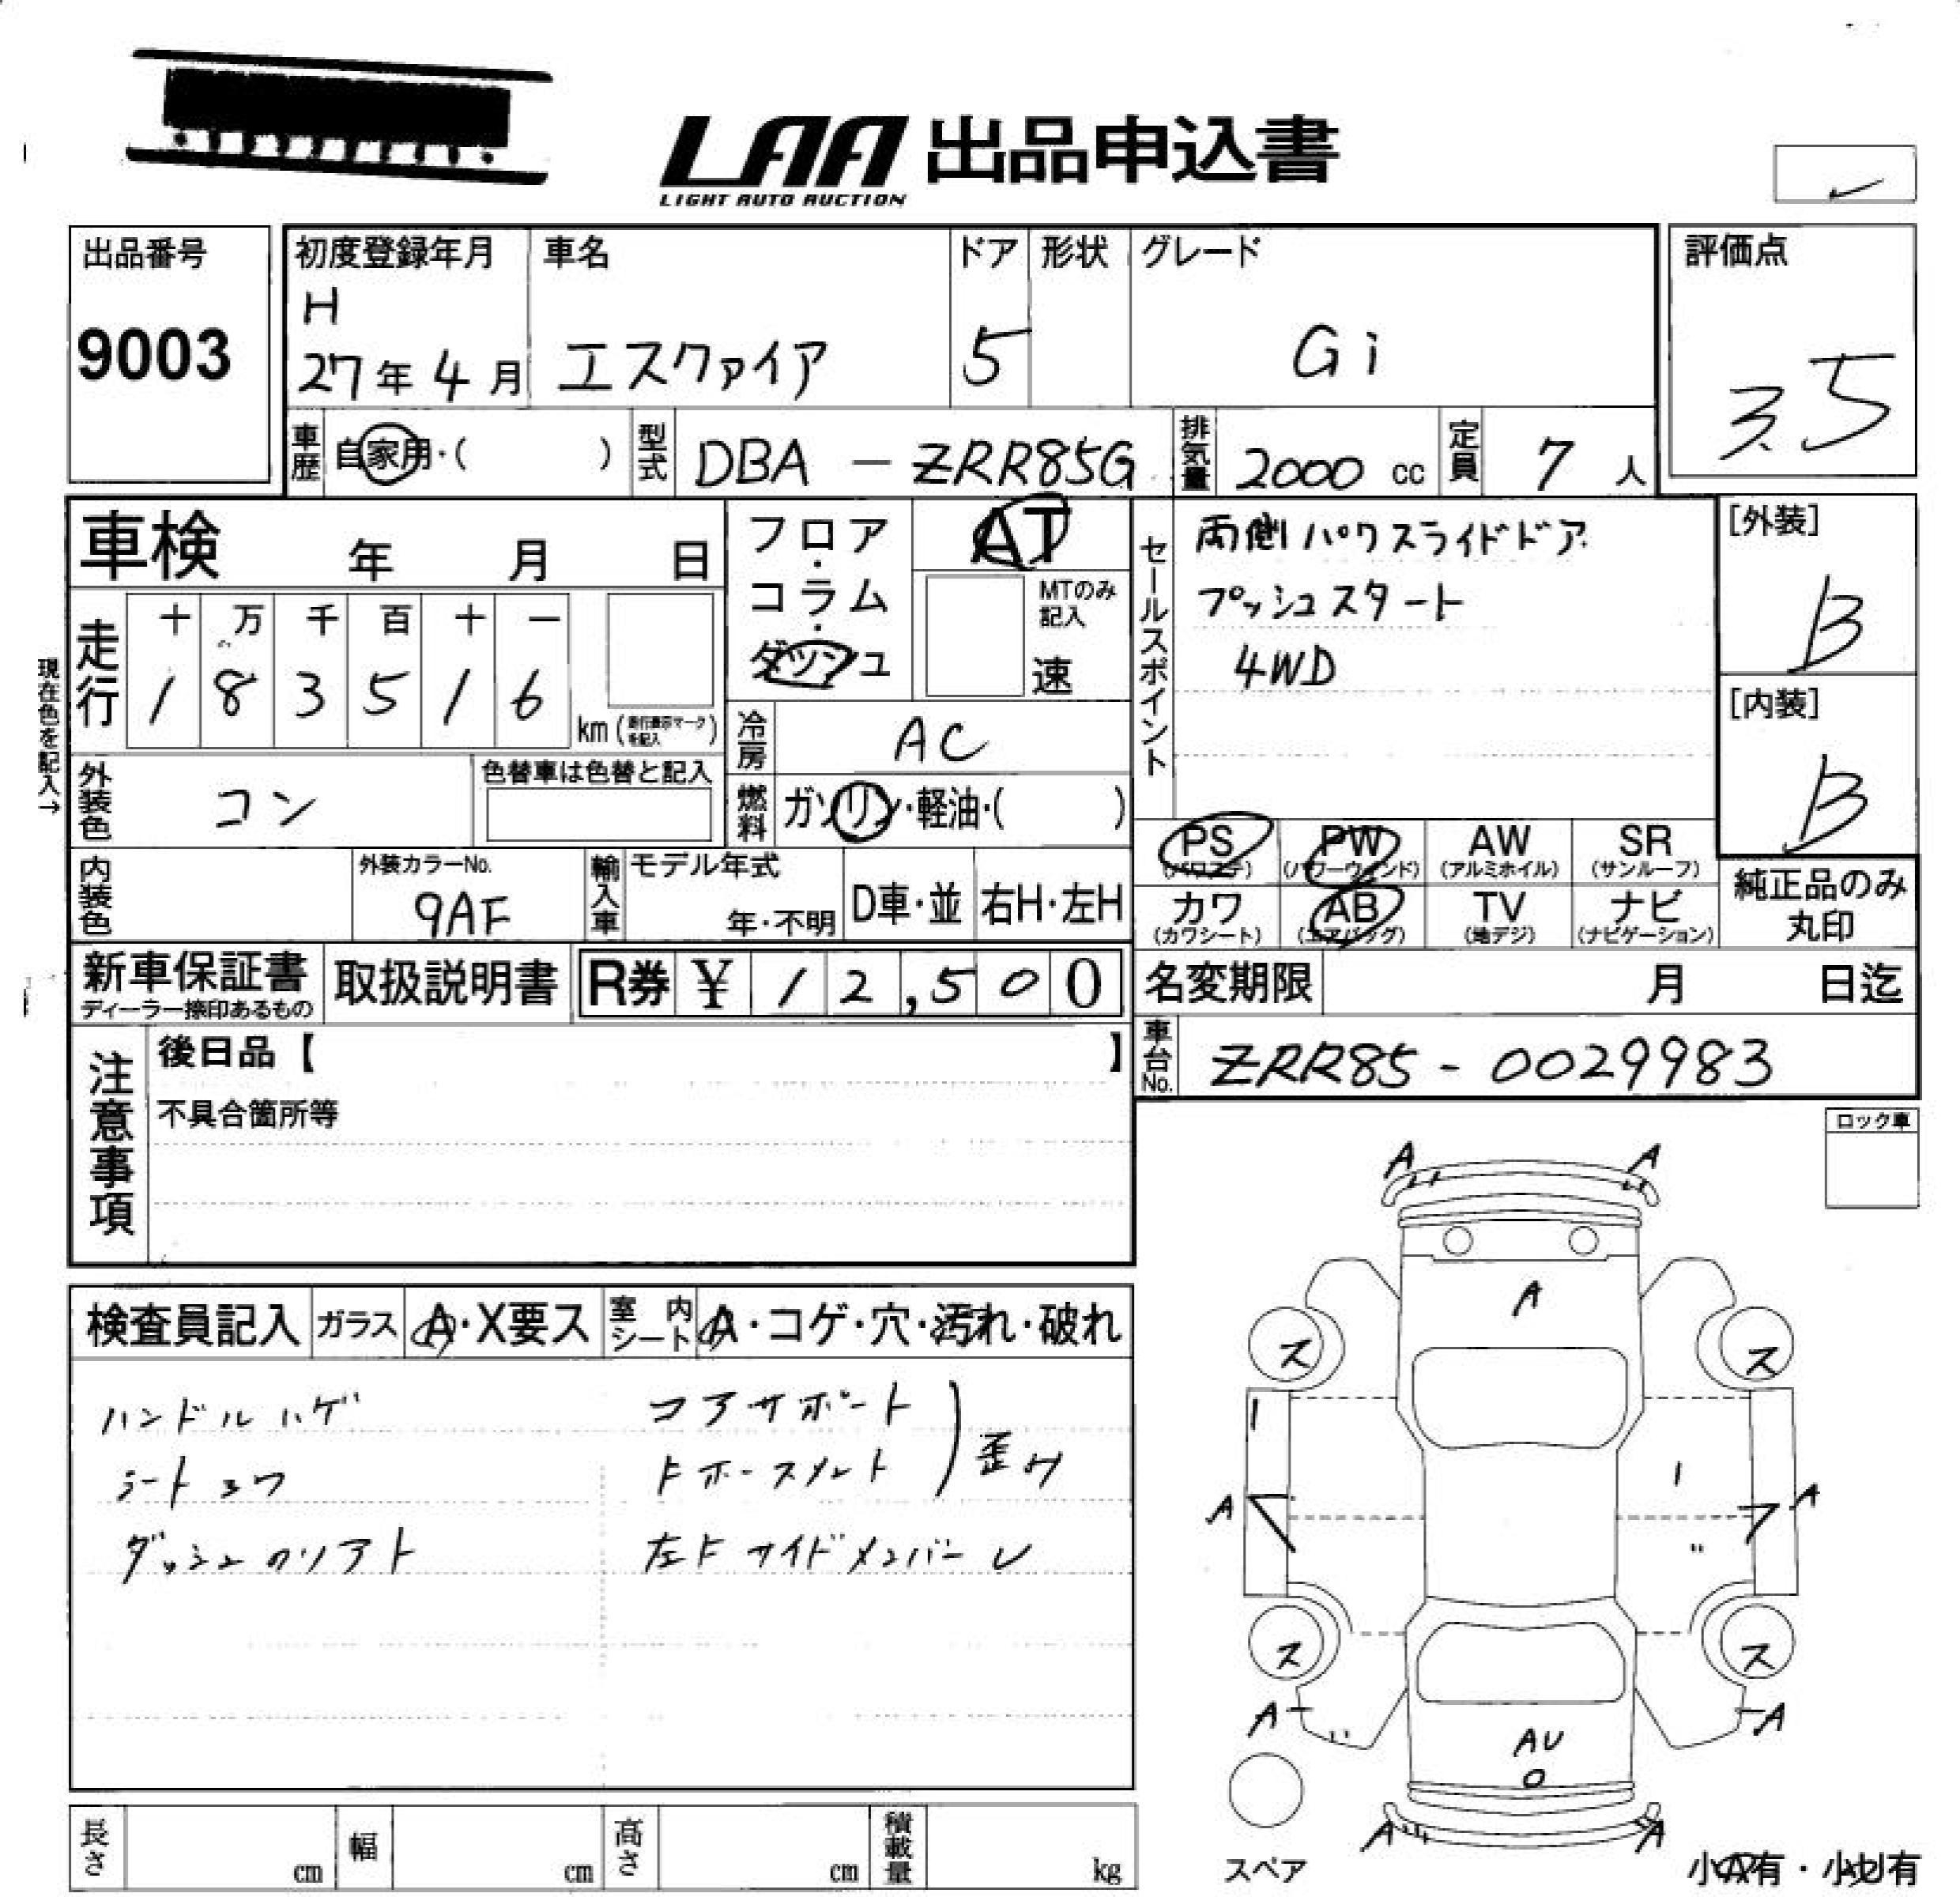 LAA 出品申込書
LIGHT AUTO AUCTION
出品番号
9003
初度登録年月
H
27年 4月
車名
エスクァイア
ドア
5
形状
グレード
Gi
評価点
3.5
車歴
自家用・( )
型式
DBA - ZRR85G
排気量
2000 cc
定員
7 人
車検 年 月 日
フロア・コラム・ダッシュ
AT
MTのみ記入
速
セールスポイント
両側パワスライドドア
プッシュスタート
4WD
[外装]
B
[内装]
B
現在色を記入→
走行
十 万 千 百 十 一
1 8 3 5 1 6
km (走行表示マークを記入)
冷房
AC
外装色
コン
色替車は色替と記入
燃料
ガソリン・軽油・( )
PS
(パワステ)
PW
(パワーウインド)
AW
(アルミホイル)
SR
(サンルーフ)
カワ
(カワシート)
AB
(エアバッグ)
TV
(地デジ)
ナビ
(ナビゲーション)
純正品のみ
丸印
内装色
外装カラーNo.
9AF
輸入車
モデル年式
年・不明
D車・並
右H・左H
新車保証書
ディーラー捺印あるもの
取扱説明書
R券 ¥ 12,500
名変期限 月 日迄
車台No.
ZRR85 - 0029983
注意事項
後日品【 】
不具合箇所等
ロック車
検査員記入
ガラス
A・X要ス
室内シート
A・コゲ・穴・汚れ・破れ
ハンドルハゲ
シートヨワ
ダッシュクリアト
コアサポート
Fホースメント
歪み
左Fサイドメンバーレ
A A
A
ス ス
A A
ス ス
A A
AU
O
A A
スペア
小A有・小凹有
長さ cm
幅 cm
高さ cm
積載量 kg